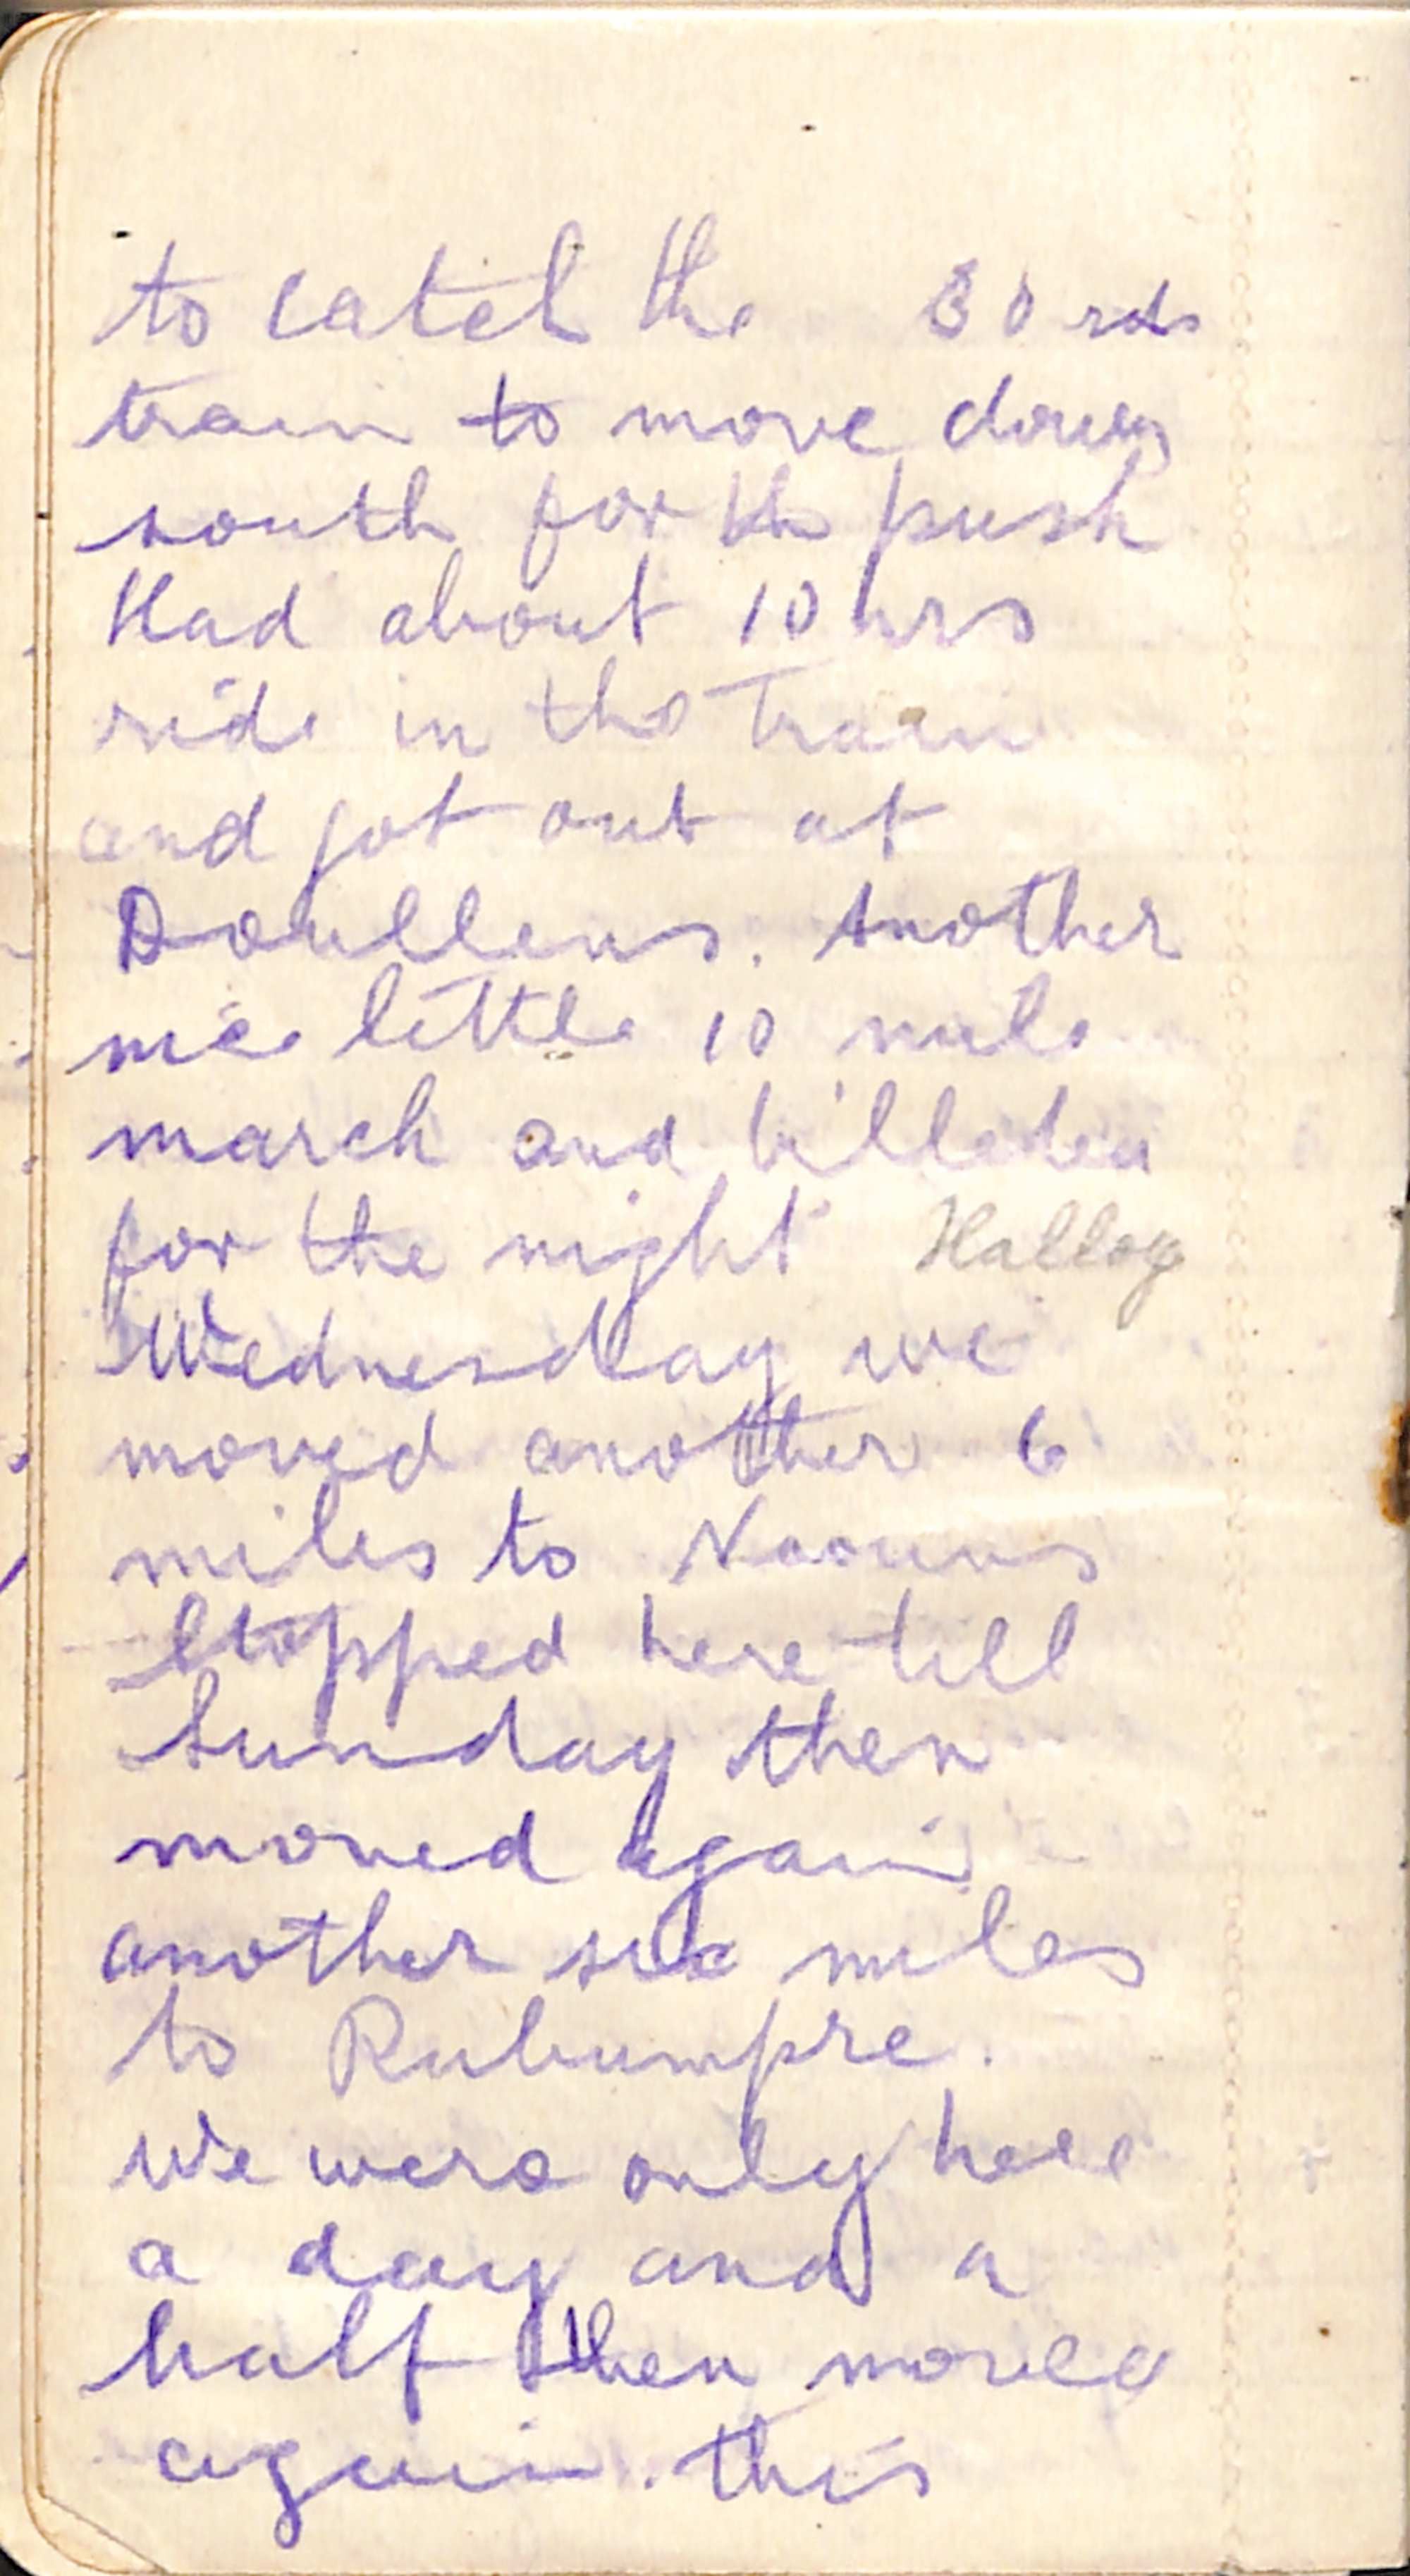 to catch the 30 rds
train to move down
south for the push
Had about 10 hrs
ride in the Train
and got out at
Doullens. Another
nice little 10 mile
march and billeted
for the night Halloy
Wednesday we
moved another 6
miles to Naours
Stopped here till
Sunday then
moved again
another six miles
to Rubumpre.
We were only here
a day and a
half then moved
again. this